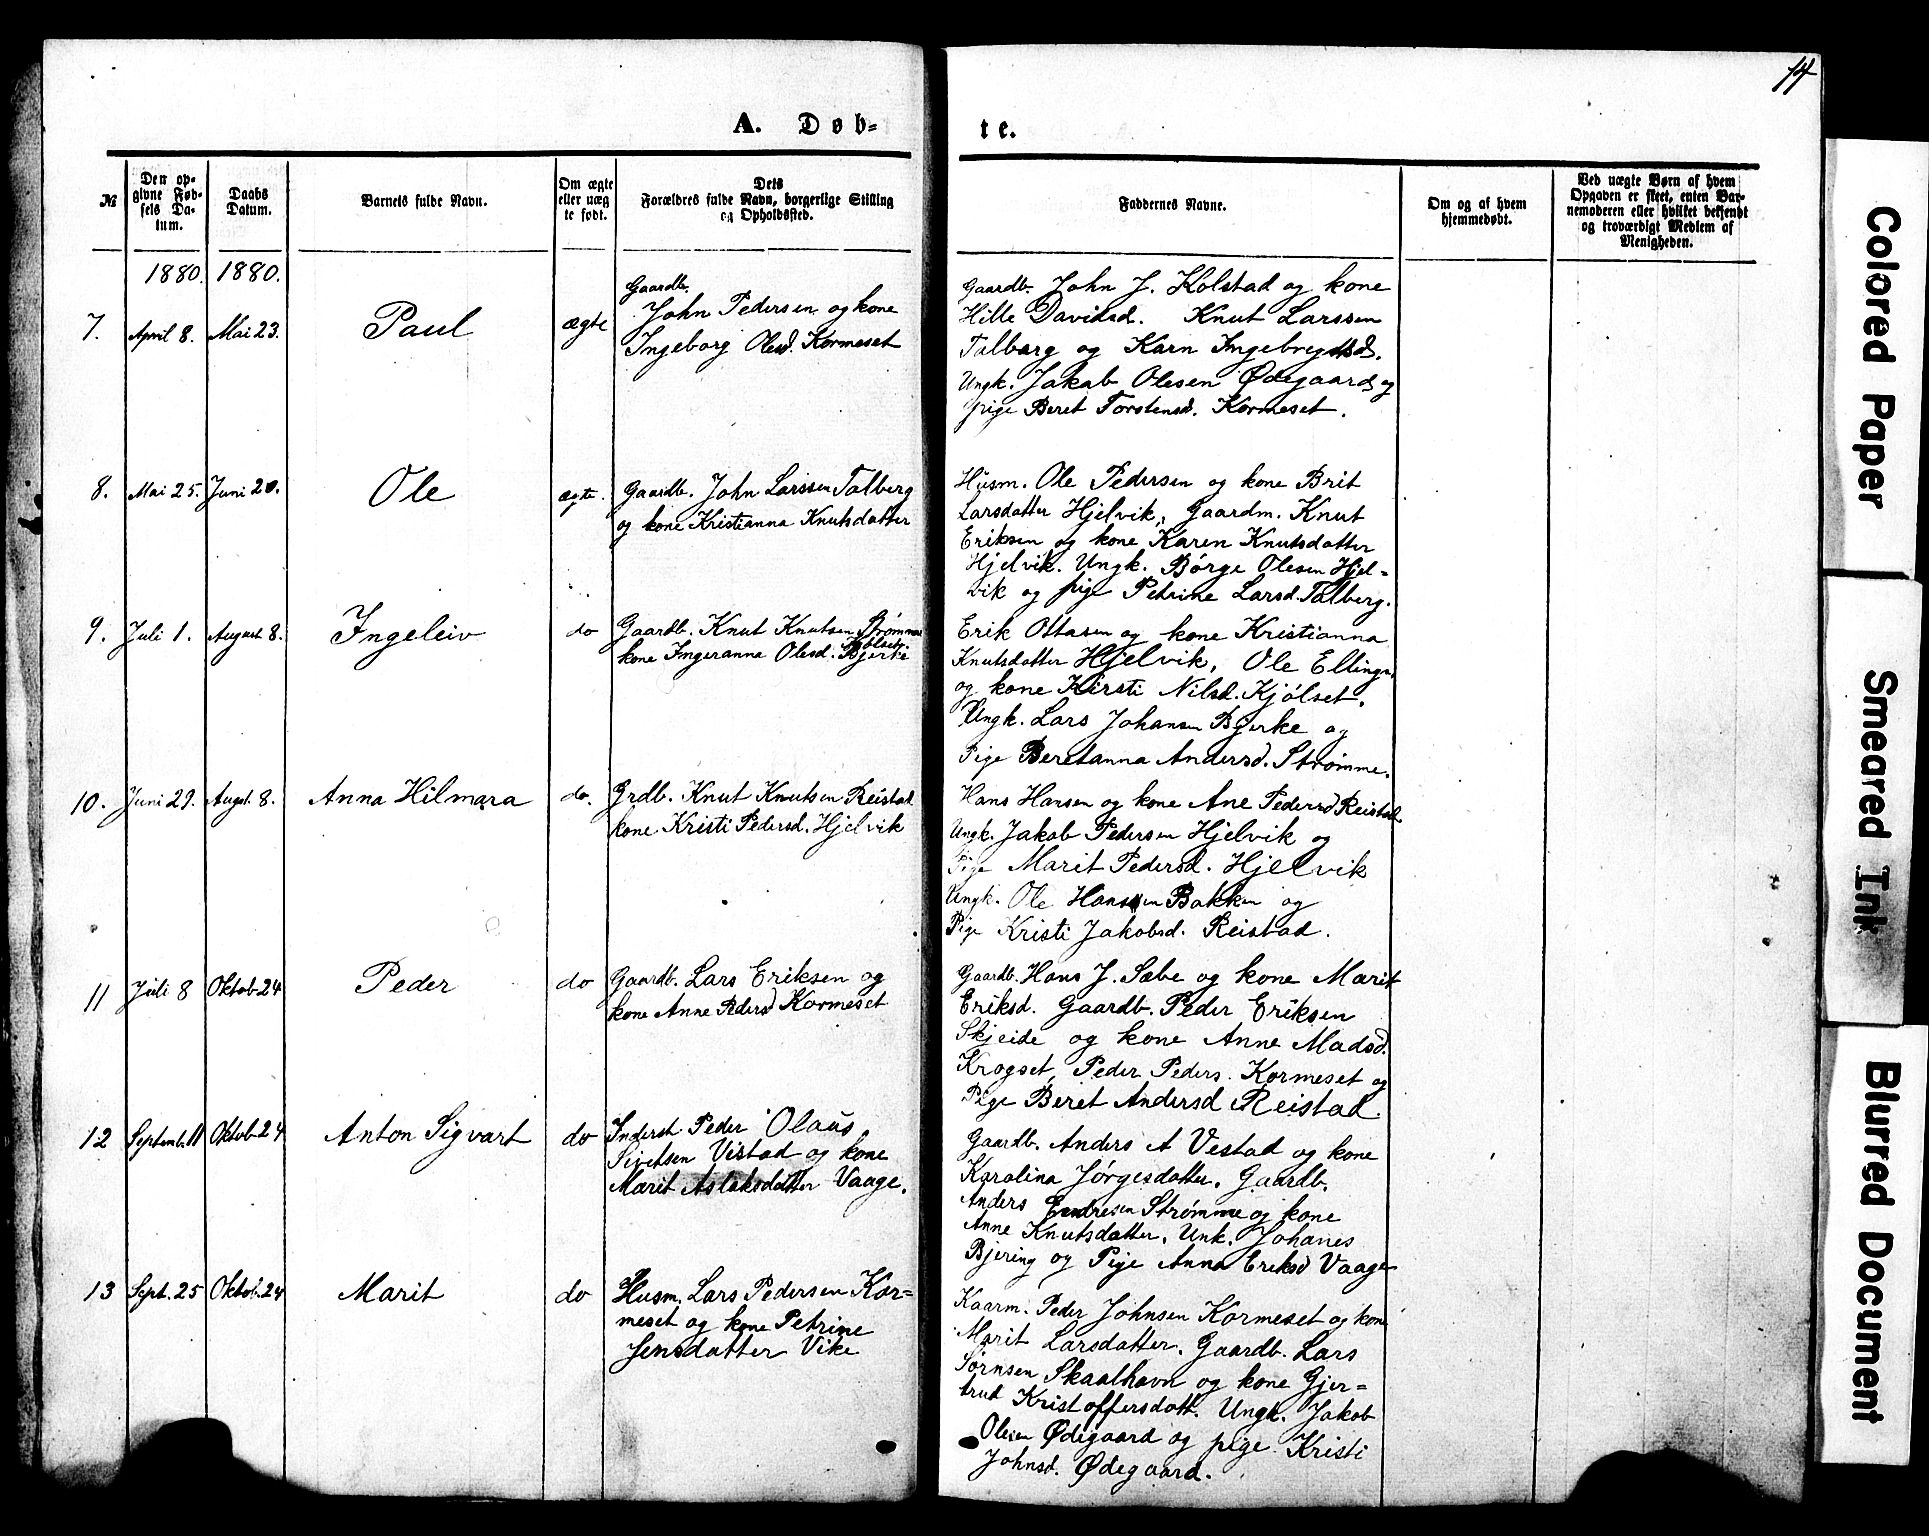 14
A. Døb-
te.
№
Den op-
givne Fød-
sels Da-
tum.
Daabs
Datum.
Barnets fulde Navn.
Om ægte
eller uæg
te født.
Dets
Forældres fulde Navn, borgerlige Stilling
og Opholdssted.
Faddernes Navne.
Om og af hvem
hjemmedøbt.
Ved uægte Børn af hvem
Opgaven er skeet, enten Bar-
nemoderen eller hvilket bekjendt
og troværdigt Medlem af
Menigheden.
1880. 1880.
7. April 8. Mai 23. Paul ægte
Gaardb.
John Pedersen og kone
Ingeborg Olesd. Kormeset
Gaardb. John J. Kolstad og kone
Hille Davidsd. Knut Larssen
Talberg og Karn Ingebrigtsd.
Ungk. Jakob Olesen Ødegaard og
pige Beret Torstensd. Kormeset.
8. Mai 25. Juni 20. Ole ægte.
Gaardb. John Larssen Talberg
og kone Kristianna Knutsdatter
Husm. Ole Pedersen og kone Brit
Larsdatter Hjelvik, Gaardm. Knut
Eriksen og kone Karen Knutsdatter
Hjelvik. Ungk. Børge Olesen Hjel=
vik og pige Petrine Larsd. Talberg.
9. Juli 1. August 8. Ingeleiv do
Gaardb. Knut Knutsen Strømme
kone Ingeranna Olesd. Bjerke
Erik Ottasen og kone Kristianna
Knutsdatter Hjelvik, Ole Ellings.
og kone Kirsti Nilsd. Kjølset.
Ungk. Lars Johansen Bjerke og
Pige Beretanna Andersd. Strømme.
10. Juni 29. Augst. 8. Anna Hilmara do.
Grdb. Knut Knutsen Reistad
kone Kristi Pedersd. Hjelvik
Hans Hansen og kone Ane Pedersd Reistad
Ungk. Jakob Pedersen Hjelvik og
Pige Marit Pedersd. Hjelvik
Ungk. Ole Hanssen Bakken og
Pige Kristi Jakobsd. Reistad.
11 Juli 8 Oktob. 24 Peder do
Gaardb. Lars Eriksen og
kone Anne Pedersd Kormeset
Gaardb. Hans J. Sæbe og kone Marit
Eriksd. Gaardb. Peder Eriksen
Skjeide og kone Anne Madsd.
Krogset, Peder Peders. Kormeset og
Pige Beret Andersd Reistad.
12 Septemb. 11 Oktob. 24 Anton Sigvart do
Inderst Peder Olaus
Sivertsen Vestad og kone
Marit Aslaksdatter Vaage.
Gaardb. Anders A Vestad og kone
Karolina Jørgesdatter. Gaardb.
Anders Endresen Strømme og kone
Anne Knutsdatter. Unk. Johanes
Bjering og Pige Anna Eriksd Vaage
13 Sept. 25 Oktob. 24 Marit do
Husm. Lars Pedersen Kor=
meset og kone Petrine
Jensdatter Vike
Kaarm. Peder Johnsen Kormeset og kone
Marit Larsdatter. Gaardb. Lars
Sørnsen Skaalhavn og kone Gjer=
trud Kristoffersdatt. Ungk. Jakob
Olesen Ødegaard og pige Kristi
Johnsd. Ødegaard.
Colored Paper
Smeared Ink
Blurred Document